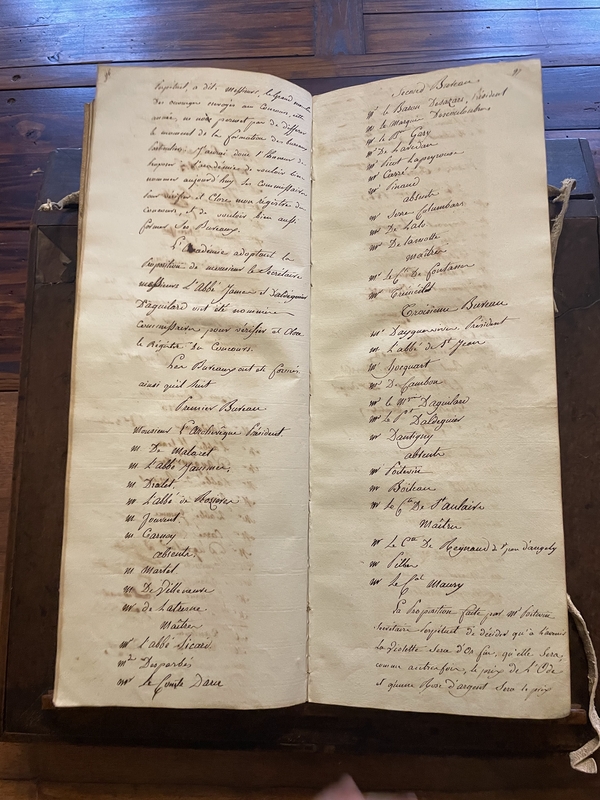 Perpétuel, a dit: Messieurs, le Grand nombre
des ouvrages envoyés au Concours, cette
année, ne vous permet pas de différer
le moment de la formation des bureaux
particuliers. J'aurai donc l'honneur de
proposer à l'académie de vouloir bien
nommer aujourd'hui des Commissaires
pour vérifier et clore mon registre du
Concours, et de vouloir bien aussi
former ses Bureaux.
L'académie adoptant la
Proposition de monsieur le Secrétaire
messieurs L'Abbé Jamme et Daldeguier
D'aguilard ont été nommés
Commissaires pour vérifier et clore
le Régistre du Concours.
Les Bureaux ont été formés
ainsi qu'il suit
Premier Bureau
Monsieur L'archevêque Président.
m. De Malaret
m. L'abbé Jamme,
m. Dralet
mr L'abbé de Rozieres
m. Jouvent
m. Carney
absents
m. Martel
mr De Villeneuve
mr de
Maîtres
mr L'abbé Sicard
mde Desparbès
mr le Comte Daru
91
Second Bureau
mr le Baron Desazars, Président
mr le Marquis Descouloubre
mr le Bon Gary
mr De Lavedan
mr Picot Lapeyrouse
mr Carré
mr Pinaud
absents
mr Serre Colombars
mr De Lalo
mr De Lamotte
maîtres
mr le Cte De Fontanes
mr Treneuil
Troisieme Bureau
mr D'ayguesvives, Président
mr L'abbé de St Jean
mr Hocquart
mr De Cambon
mr le Mis D'aguilard
mr le Pt Daldeguier
mr Dantigny
absents
mr Poitevin
mr Boileau
mr le Cte De St aulaire
Maîtres
mr le Cte De Regnaud de St jean d'angely
mr
mr le Cal Maury
La Proposition faite par mr Poitevin
Secrétaire perpétuel de décider qu'à l'avenir
La Violette Sera d'Or fin, qu'elle Sera,
comme autrefois, le prix de L'Ode
et qu'une Rose d'argent Sera le prix